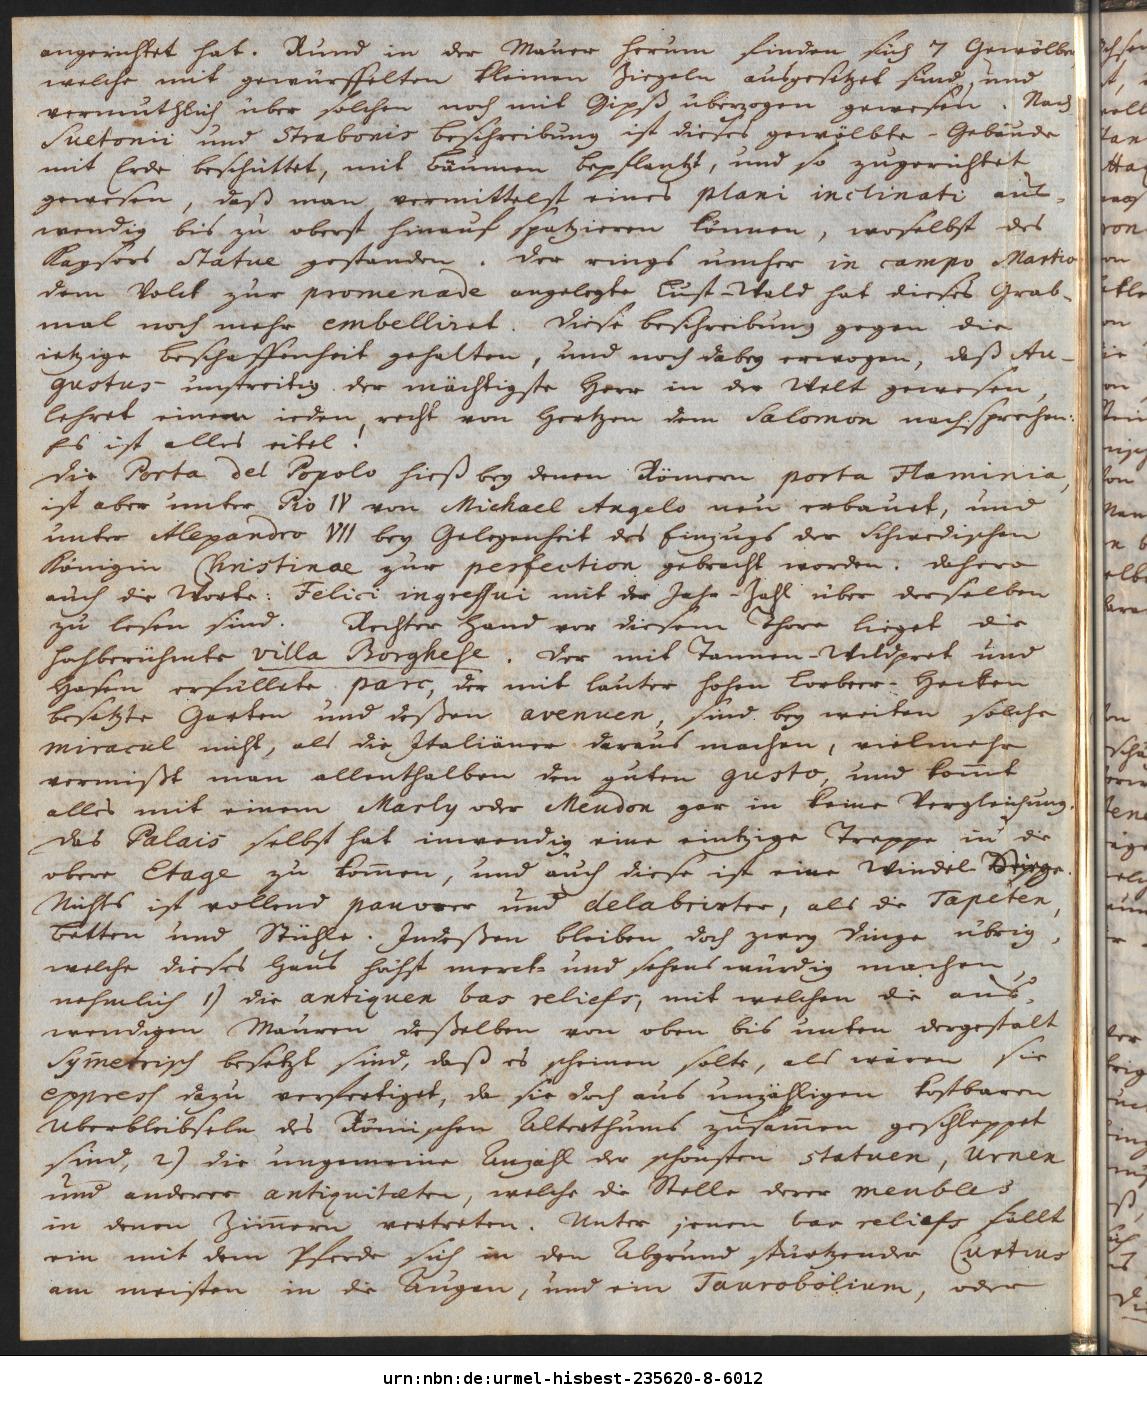 angerichtet hat. Rund in der Mauer herum finden sich 7 Gewölber
welche mit gewürffelten kleinen Ziegeln ausgesetzet sind, und
vermuthlich über solchen noch mit Gipß überzogen gewesen. Nach
Suetonii und Strabonis Beschreibung ist dieses gewölbte-Gebäude
mit Erde beschüttet, mit Bäumen bepflantzt, und so zugerichtet
gewesen, daß man vermittelst eines plani inclinati aus-
wendig bis zu oberst hinauf spatzieren können, woselbst des
Kaysers Statue gestanden. Der rings umher in campo Martio
dem Volck zur promenade angelegte Lust-Wald hat dieses Grab-
mal noch mehr embelliret. Diese Beschreibung gegen die
ietzige Beschaffenheit gehalten, und noch dabey erwogen, daß Au-
gustus unstreitig der mächtigste Herr in der Welt gewesen,
lehret einem ieden, recht von Hertzen dem Salomon nachsprechen:
Es ist alles eitel!
Die Porta del Popolo hieß bey denen Römern porta Flaminia,
ist aber unter Pio IV von Michael Angelo neu erbauet, und
unter Alexandro VII bey Gelegenheit des Einzugs der Schwedischen
Königin Christinae zur perfection gebracht worden. Dahero
auch die Worte: Felici ingressui mit der Jahr-Zahl über derselben
zu lesen sind. Rechter Hand vor diesem Thore lieget die
hochberühmte villa Borghese. Der mit Tannen-Wildpret und
Hasen erfüllete parc, der mit lauter hohen Lorbeer-Hecken
besetzte Garten und deßen avenuen, sind bey weiten solche
miracul nicht, als die Italiäner daraus machen, vielmehr
vermißt man allenthalben den guten gusto, und kom̅t
alles mit einem Marly oder Meudon gar in keine Vergleichung.
Das Palais selbst hat inwendig eine eintzige Treppe in die
obere Etage zu kom̅en, und auch diese ist eine Windel Stiege.
Nichts ist vollend pauvrer und delabrirter, als die Tapeten,
Betten und Stühle. Indeßen bleiben doch zwey Dinge übrig,
welche dieses Haus höchst merck- und sehenswürdig machen,
nehmlich 1) die antiquen bas reliefs, mit welchen die aus-
wendigen Mauren deßelben von oben bis unten dergestalt
Sym̅etrisch besetzt sind, daß es scheinen solte, als wären sie
express dazu verfertiget, da sie doch aus unzähligen kostbaren
Uberbleibseln des Römischen Alterthums zusam̅en geschleppet
sind, 2) die ungemeine Anzahl der schönsten statuen, urnen
und anderer antiquitæten, welche die Stelle derer meubles
in denen Zim̅ern vertreten. Unter jenen bas reliefs fällt
ein mit dem Pferde sich in den Abgrund stürtzender Curtius
am meisten in die Augen, und ein Taurobolium, oder
urn:nbn:de:urmel-hisbest-235620-8-6012